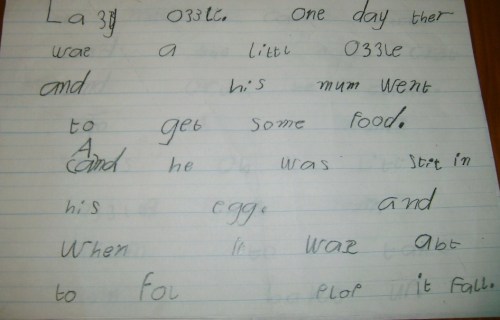 La3y o33le. one day ther
wae a littl o33le
and his mum went
to get some food.
And he was stit in
his egg. and
when it wae abt
to fol plop it fall.